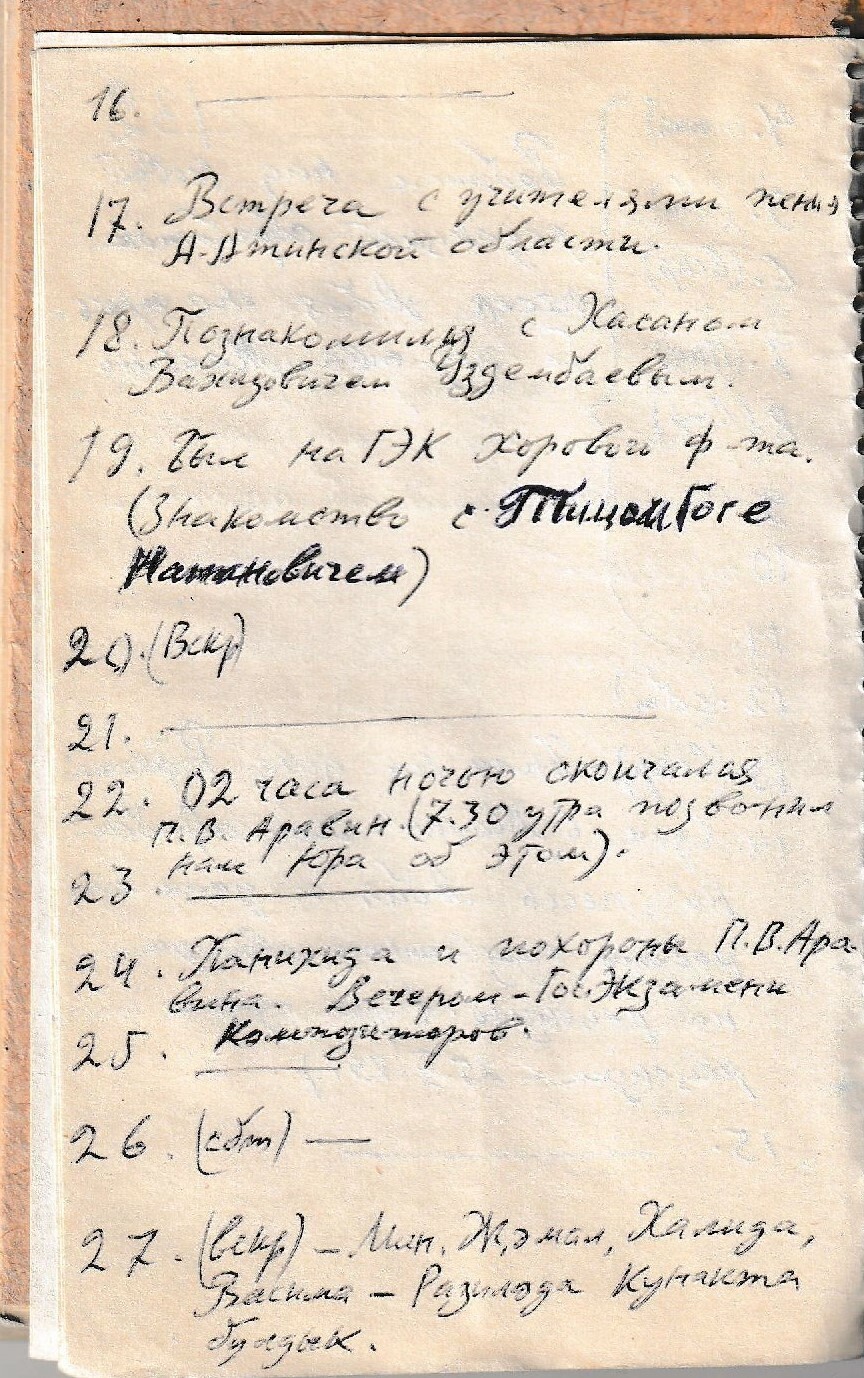 16. ———
17. Встреча с учителями пения
А-Атинской области.
18. Познакомился с Хасаном
Вахизовичем Уздембаевым.
19. Был на ГЭК хорового ф-та.
(Знакомство с Гоге
Натановичем)
20. (Вскр)
21. ———
22. 02 часа ночью скончался
П.В. Аравин. (7.30 утра позвонил
нам Юра об этом).
23. ———
24. Панихида и похороны П.В. Ара-
вина. Вечером - Гос.Экзамены
Композиторов.
25. ———
26. (сбт) —
27. (вскр) - Мин, Жэмал, Халида,
Васима - Разилода Кунакта
булдык.